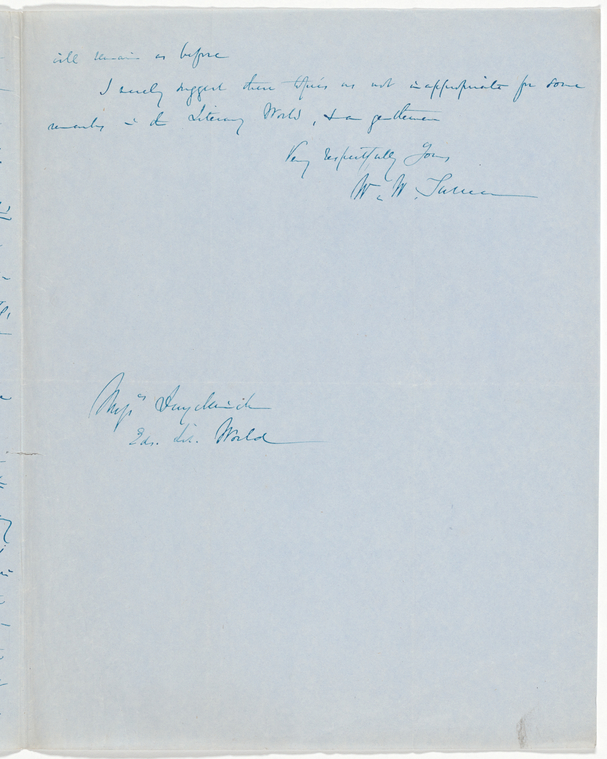 will remain as before
I merely suggest these topics as not inappropriate for some
remarks in the Literary World, & am gentlemen
Very respectfully Yours
W. W. Turner
Mess^rs Duyckinck
Eds. Lit. World